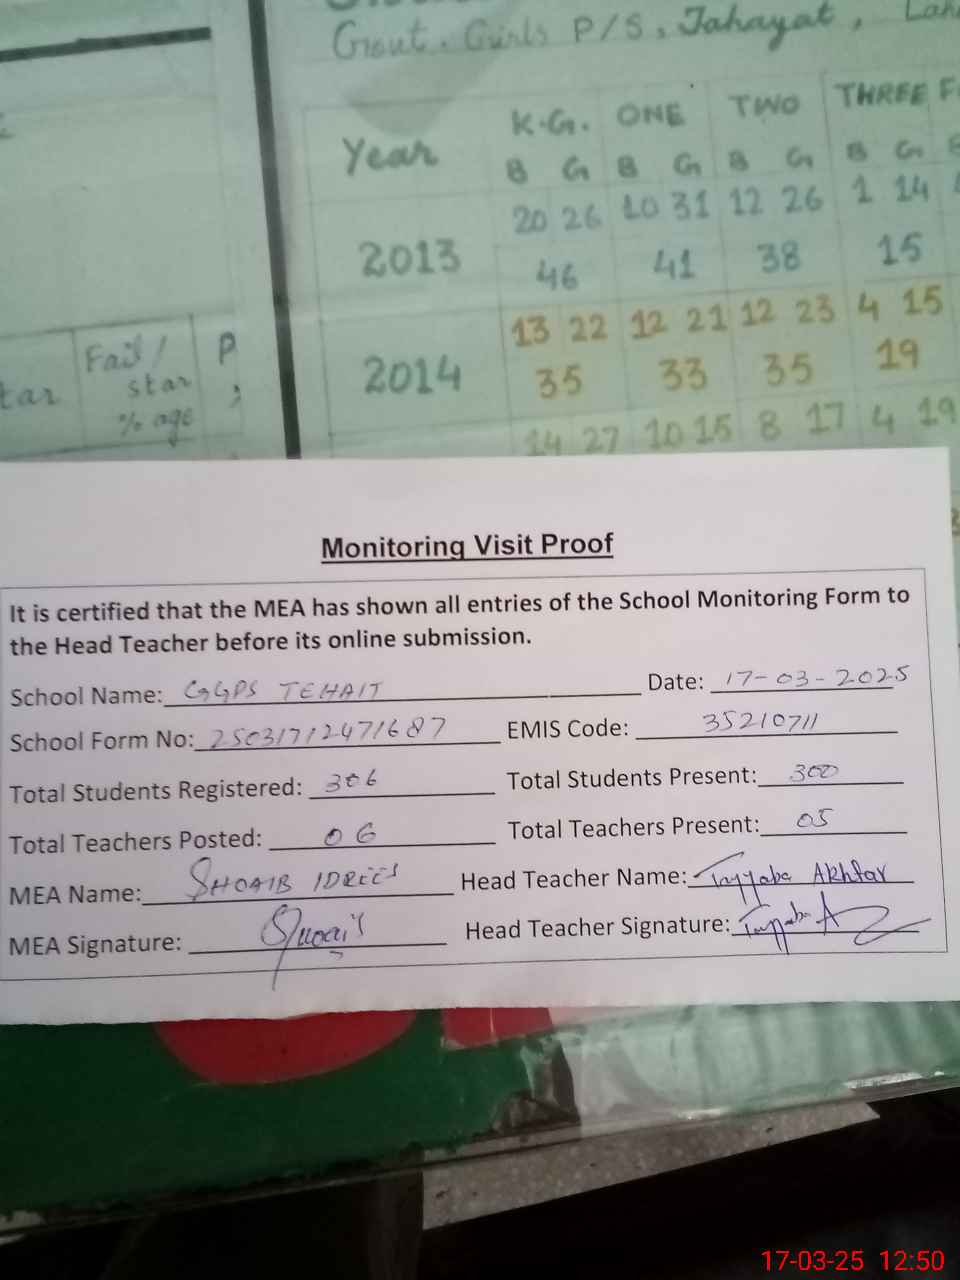 Gout. Girls P/S, Jahayat, Lah
Year K.G. ONE TWO THREE
B G B G B G B G
20 26 10 31 12 26 1 14
2013 46 41 38 15
13 22 12 21 12 23 4 15
2014 35 33 35 19
14 27 10 15 8 17 4 19
tar Fail/ P
star
% age
Monitoring Visit Proof
It is certified that the MEA has shown all entries of the School Monitoring Form to
the Head Teacher before its online submission.
School Name: GGPS TEHAIT Date: 17-03-2025
School Form No: 25031712471687 EMIS Code: 35210711
Total Students Registered: 306 Total Students Present: 300
Total Teachers Posted: 06 Total Teachers Present: 05
MEA Name: SHOAIB IDREES Head Teacher Name: Tayyaba Akhtar
MEA Signature: Shoaib Head Teacher Signature: Tayyaba A
17-03-25 12:50